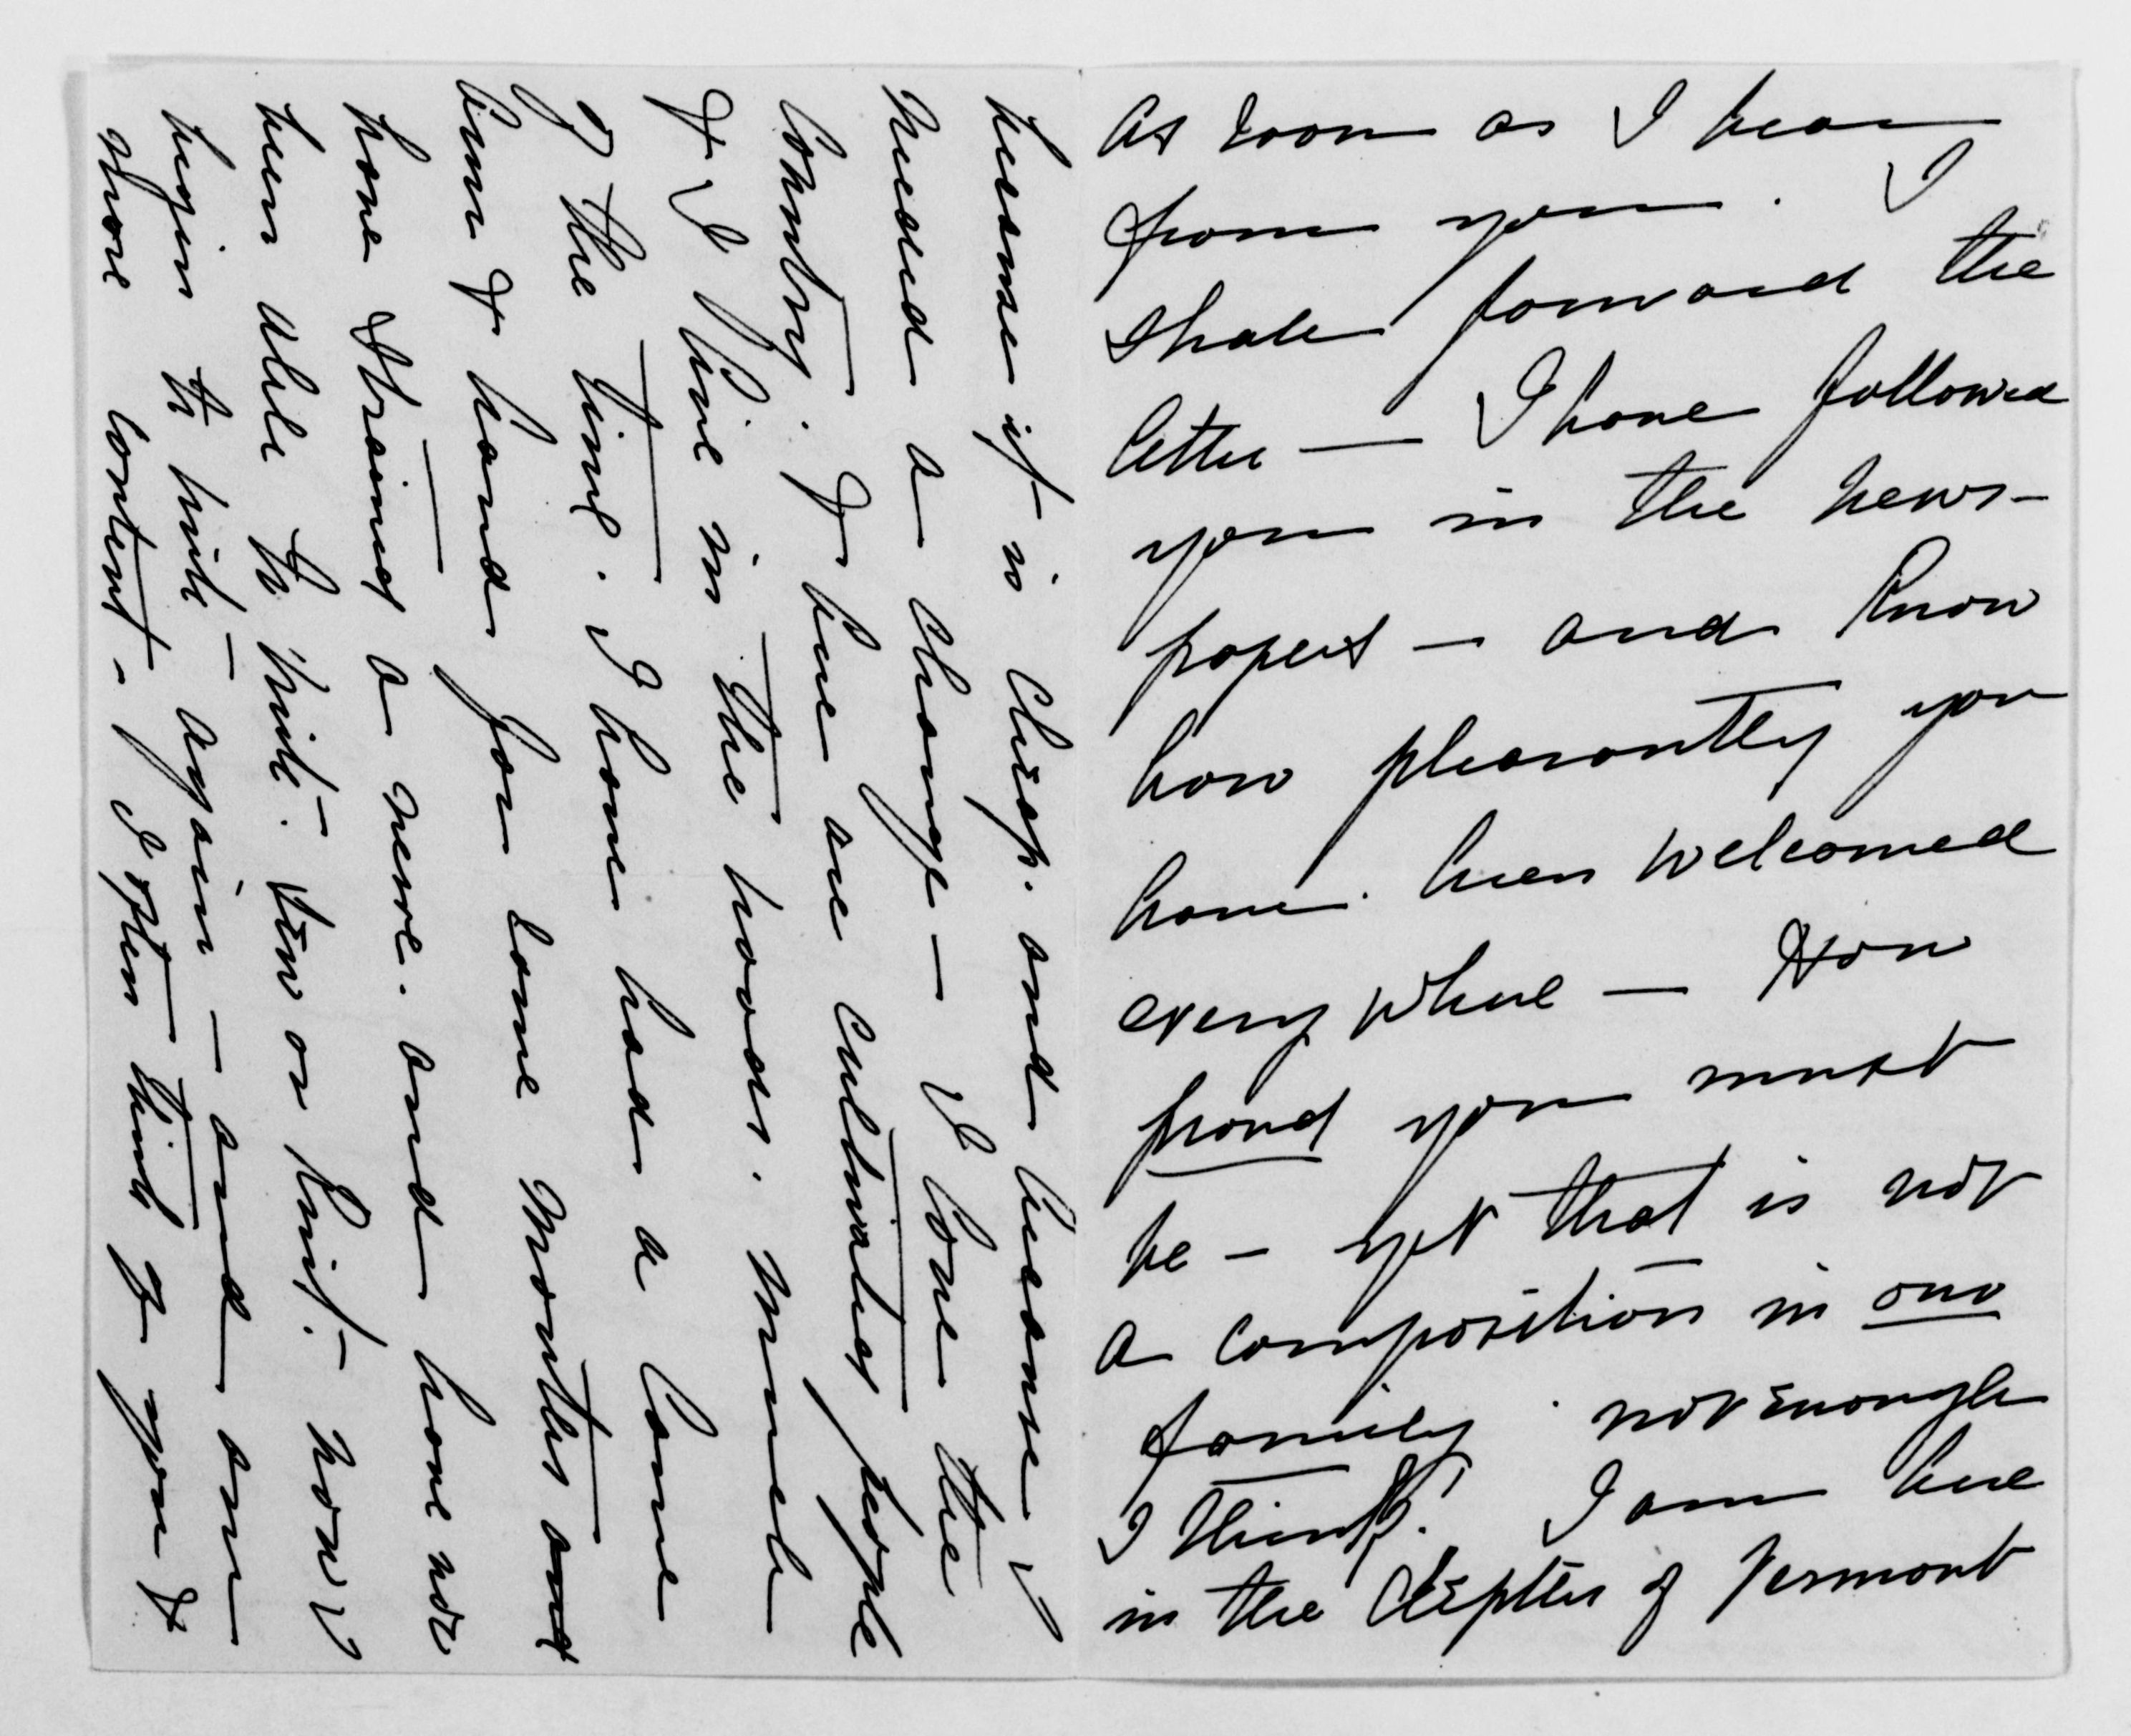 As soon as I hear
from you. I
shall forward the
letter — I have followed
you in the news-
papers — and know
how pleasantly you
have been welcomed
every where — How
proud you must
be — yet that is not
a composition in our
family. not enough
I think. I am here
in the depths of Vermont
because it is cheap. and because I
needed a change — I love the
Country. & here are cultivated people
& I live in the woods. much
of the time. I have had a lame
arm & hand for some months and
have strained a nerve. and have not
been able to write. sew or knit. now I
begin to write again — and am
more content. I often think of you &